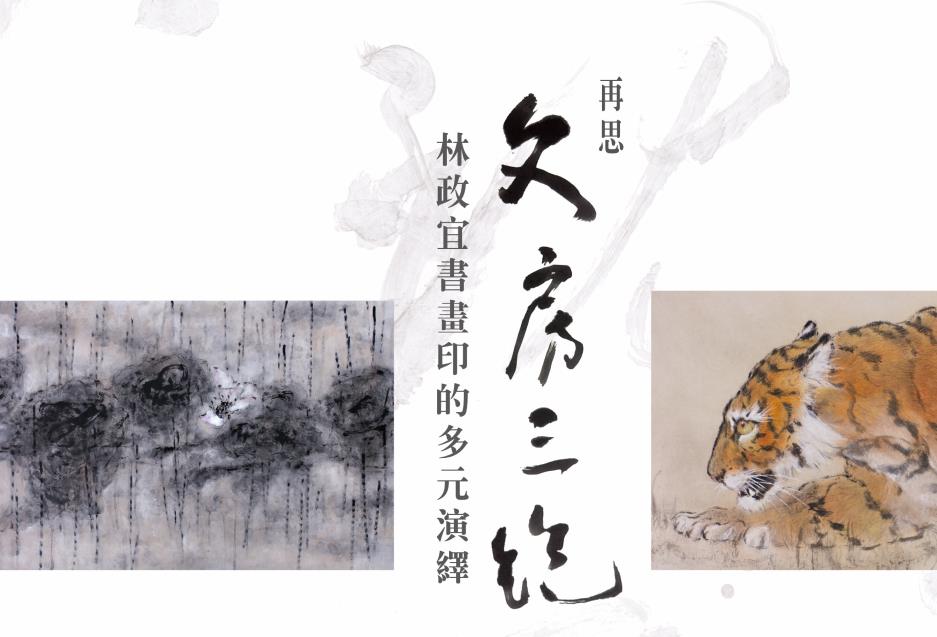 再思
文房三絕
林政宜書畫印的多元演繹